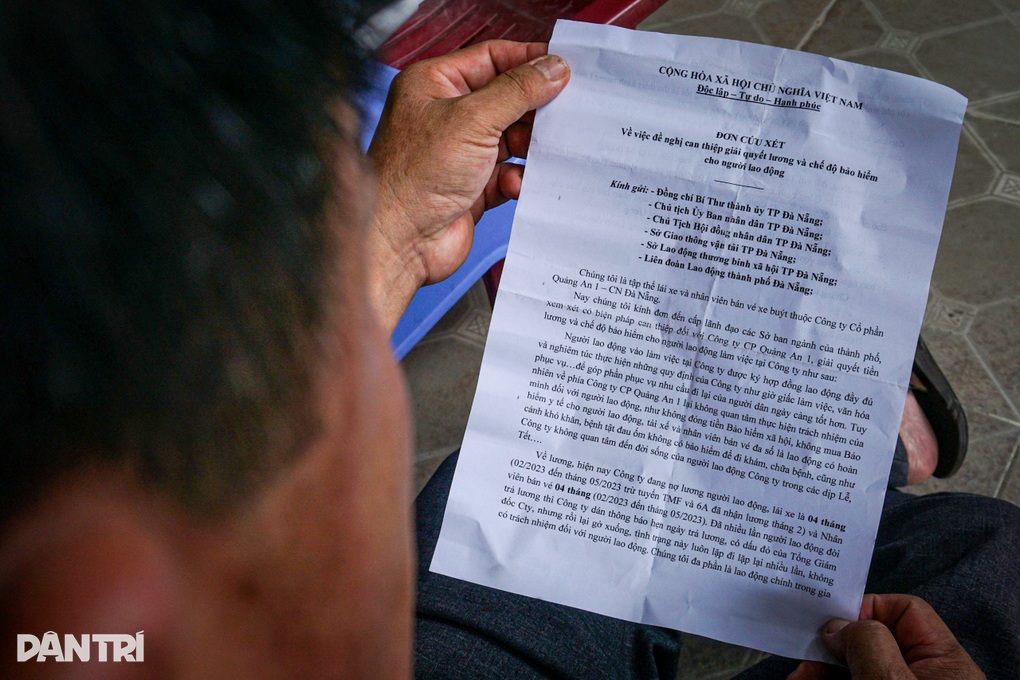 CỘNG HÒA XÃ HỘI CHỦ NGHĨA VIỆT NAM
Độc lập – Tự do – Hạnh phúc
ĐƠN CỨU XÉT
Về việc đề nghị can thiệp giải quyết lương và chế độ bảo hiểm
cho người lao động
Kính gửi: - Đồng chí Bí Thư thành ủy TP Đà Nẵng;
- Chủ tịch Ủy Ban nhân dân TP Đà Nẵng;
- Chủ Tịch Hội đồng nhân dân TP Đà Nẵng;
- Sở Giao thông vận tải TP Đà Nẵng;
- Sở Lao động thương binh xã hội TP Đà Nẵng;
- Liên đoàn Lao động thành phố Đà Nẵng;
Chúng tôi là tập thể lái xe và nhân viên bán vé xe buýt thuộc Công ty Cổ phần
Quảng An 1 – CN Đà Nẵng.
Nay chúng tôi kính đơn đến cấp lãnh đạo các Sở ban ngành của thành phố,
xem xét có biện pháp can thiệp đối với Công ty CP Quảng An 1, giải quyết tiền
lương và chế độ bảo hiểm cho người lao động làm việc tại Công ty như sau:
Người lao động vào làm việc tại Công ty được ký hợp đồng lao động đầy đủ
và nghiêm túc thực hiện những quy định của Công ty như giờ giấc làm việc, văn hóa
phục vụ…để góp phần phục vụ nhu cầu đi lại của người dân ngày càng tốt hơn. Tuy
nhiên về phía Công ty CP Quảng An 1 lại không quan tâm thực hiện trách nhiệm của
mình đối với người lao động, như không đóng tiền Bảo hiểm xã hội, không mua Bảo
hiểm y tế cho người lao động, tài xế và nhân viên bán vé đa số là lao động có hoàn
cảnh khó khăn, bệnh tật đau ốm không có bảo hiểm để đi khám, chữa bệnh, cũng như
Công ty không quan tâm đến đời sống của người lao động Công ty trong các dịp Lễ,
Tết….
Về lương, hiện nay Công ty đang nợ lương người lao động, lái xe là 04 tháng
(02/2023 đến tháng 05/2023 trừ tuyến TMF và 6A đã nhận lương tháng 2) và Nhân
viên bán vé 04 tháng (02/2023 đến tháng 05/2023). Đã nhiều lần người lao động đòi
trả lương thì Công ty dán thông báo hẹn ngày trả lương, có dấu đỏ của Tổng Giám
đốc Cty, nhưng rồi lại gở xuống, tình trạng này luôn lặp đi lặp lại nhiều lần, không
có trách nhiệm đối với người lao động. Chúng tôi đa phần là lao động chính trong gia
DÂN TRÍ